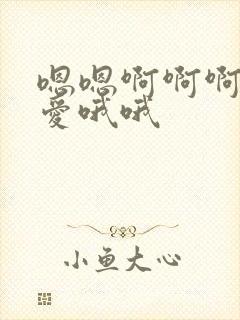 嗯嗯啊啊啊
爱哦哦
小鱼大心